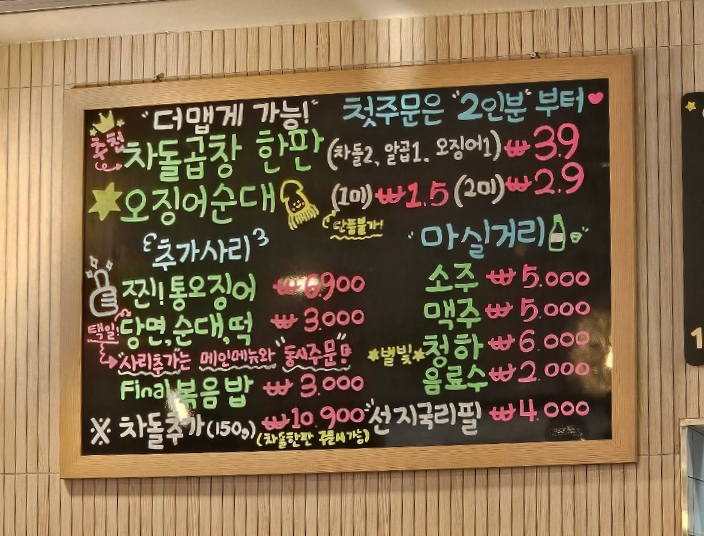 "더맵게 가능!" 첫주문은 "2인분"부터♥
추천 차돌곱창 한판 (차돌2, 알곱1, 오징어1) ₩3.9
★오징어순대 (1미) ₩1.5 (2미) ₩2.9
단품불가!
추가사리
찐!통오징어 ₩6.900
택일! 당면,순대,떡 ₩3.000
"사리추가는 메인메뉴와 "동시주문"
Final 볶음밥 ₩3.000
※ 차돌추가(150g) ₩10.900
(차돌한판 주문시가능)
"마실거리"
소주 ₩5.000
맥주 ₩5.000
*별빛* 청하 ₩6.000
음료수 ₩2.000
"선지국리필 ₩4.000